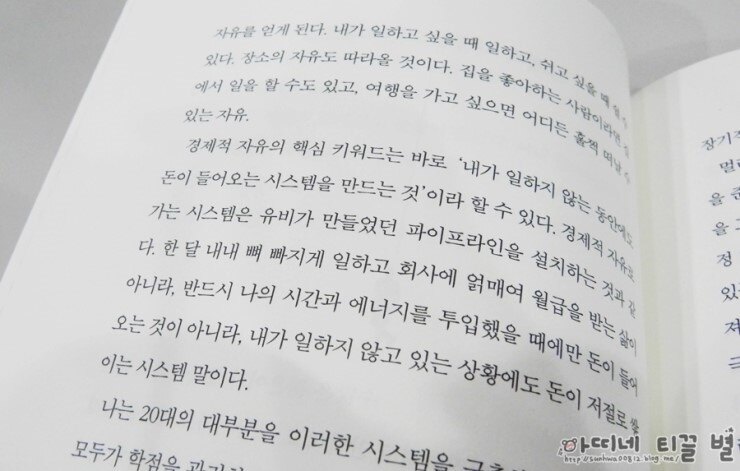 자유를 얻게 된다. 내가 일하고 싶을 때 일하고, 쉬고 싶을 때 쉴 수
있다. 장소의 자유도 따라올 것이다. 집을 좋아하는 사람이라면
에서 일을 할 수도 있고, 여행을 가고 싶으면 어디든 훌쩍 떠날 수
있는 자유.
경제적 자유의 핵심 키워드는 바로 ‘내가 일하지 않는 동안에도
돈이 들어오는 시스템을 만드는 것’이라 할 수 있다. 경제적 자유로
가는 시스템은 유비가 만들었던 파이프라인을 설치하는 것과 같
다. 한 달 내내 뼈 빠지게 일하고 회사에 얽매여 월급을 받는 삶이
아니라, 반드시 나의 시간과 에너지를 투입했을 때에만 돈이 들어
오는 것이 아니라, 내가 일하지 않고 있는 상황에도 돈이 저절로 쌓
이는 시스템 말이다.
나는 20대의 대부분을 이러한 시스템을
모두가 학점을
장기적
멀
을 준
을
정
있
져
극
아띠네 티끌 별
http://sunhwa00812.blog.me/